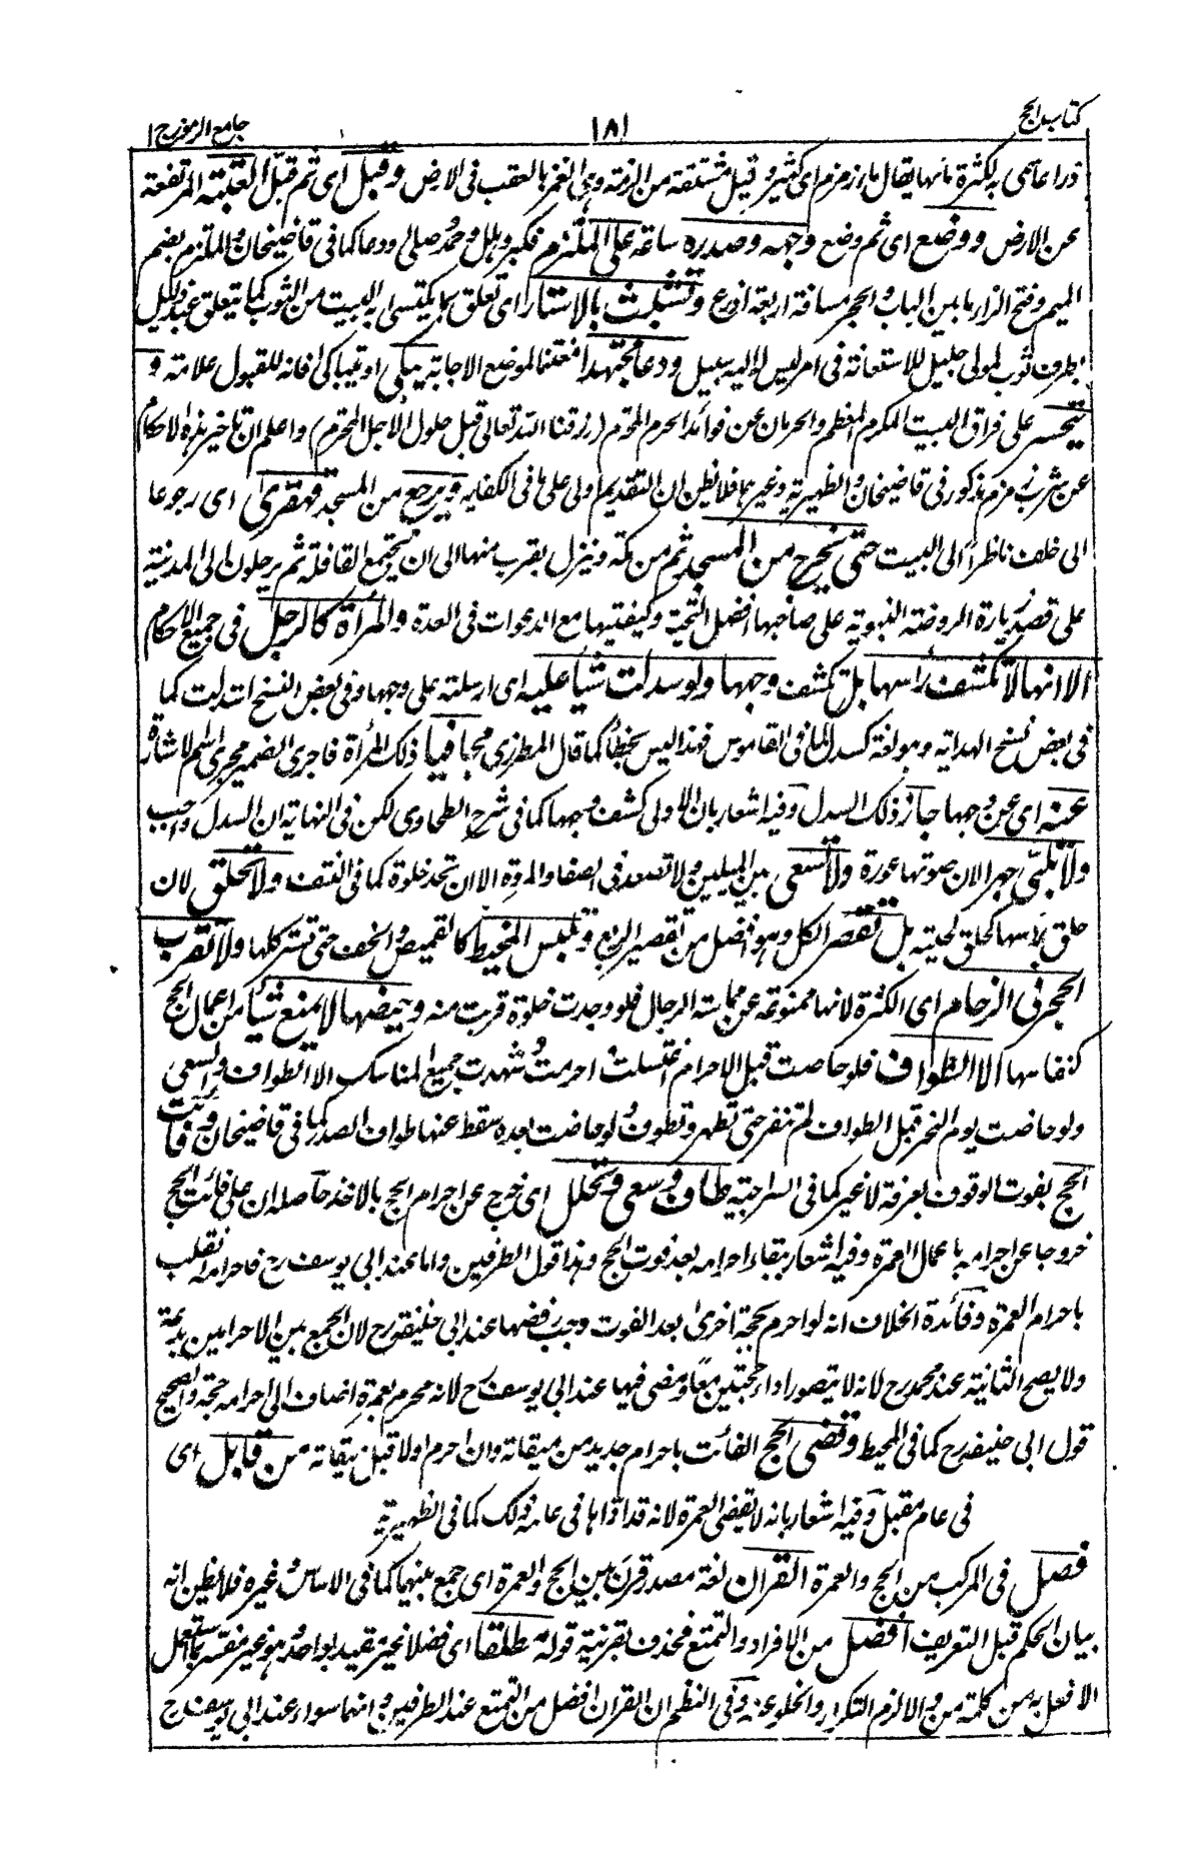 كتاب الحج ١٨١ جامع الرموز ج ١
ذراعا سمى به لكثرة مائها يقال ماء زمزم اى كثير وقيل مشتقة من الزمة وهى الغمز بالعقب فى الارض وقبل اى ثم قبل العتبة المرتفعة
عن الارض ووضع اى ثم وضع وجهه وصدره ساعة على الملتزم فكبر وهلل وحمد وصلى ودعا كما فى قاضيخان والملتزم بضم
الميم وفتح الزاء ما بين الباب والحجر مسافة اربعة اذرع وتشبث بالاستار اى تعلق بما يكتسى به البيت من الثوب كما يتعلق عبد ذليل
بطرف ثوب لمولى جليل للاستعانة فى امر ليس له اليه سبيل ودعا مجتهدا مغتنما لموضع الاجابة يبكى او تباكى فانه للقبول علامة و
يتحسر على فراق البيت المكرم المعظم والحرمان عن فوائد الحرم المحترم (رزقنا الله تعالى قبل حلول الاجل المخترم) واعلم ان تاخير هذه الاحكام
عن شرب زمزم مذكور فى قاضيخان والظهيرية وغيرهما فلا نظن ان التقديم اولى على ما فى الكفاية ويرجع من المسجد قهقرى اى رجوعا
الى خلف ناظرا الى البيت حتى يخرج من المسجد ثم من مكة وينزل بقرب منها الى ان يجتمع القافلة ثم يرحلون الى المدينة
على قصد زيارة الروضة النبوية على صاحبها افضل التحية وكيفيتها مع الدعوات فى العدة والمرأة كالرجل فى جميع الاحكام
الا انها لا تكشف رأسها بل تكشف وجهها ولو سدلت شيأ عليه اى ارسلته على وجهها وفى بعض النسخ استدلت كما
فى بعض نسخ الهداية وهو لغة كسدل كما فى القاموس فهذا ليس بخطأ كما قال المطرزى مجافيا ذلك المرأة فاجرى الضمير مجرى اسم الاشارة
عنه اى عن وجهها جاز ذلك السدل وفيه اشعار بان الاولى كشف وجهها كما فى شرح الطحاوى لكن فى النهاية ان السدل واجب
ولا تلبى جهرا لان صوتها عورة ولا تسعى بين الميلين ولا تصعد فى الصفا والمروة الا ان تجد خلوة كما فى النتف ولا تحلق لان
حلق رأسها كحلق لحيته بل تقصر الكل وهو افضل من تقصير الربع وتلبس المخيط كالقميص والخف حتى تستر كلها ولا تقرب
الحجر فى الزحام اى الكثرة لانها ممنوعة عن مماسة الرجال فلو وجدت خلوة قربت منه وحيضها لا يمنع شيأ من اعمال الحج
كنفاسها الا الطواف فلو حاضت قبل الاحرام اغتسلت واحرمت وشهدت جميع المناسك الا الطواف والسعى
ولو حاضت يوم النحر قبل الطواف لم تنفر حتى تطهر وتطوف ولو حاضت بعده سقط عنها طواف الصدر كما فى قاضيخان وفائت
الحج بفوت الوقوف بعرفة لا غير كما فى السراجية طاف وسعى وتحلل اى خرج عن احرام الحج بالاخذ حاصله ان على فائت الحج
خروجا عن احرامه باعمال العمرة وفيه اشعار ببقاء احرامه بعد فوت الحج وهذا قول الطرفين واما عند ابى يوسف رح فاحرامه انقلب
باحرام العمرة وفائدة الخلاف انه لو احرم بحجة اخرى بعد الفوت وجب رفضها عند ابى حنيفة رح لان الجمع بين الاحرامين بدعة
ولا يصح الثانية عند محمد رح لانه لا يتصور اداء حجتين معا ومضى فيها عند ابى يوسف رح لانه محرم بعمرة اضاف الى احرامه حجة والصحيح
قول ابى حنيفة رح كما فى المحيط وقضى الحج الفائت باحرام جديد من ميقاته وان احرم اولا قبل ميقاته من قابل اى
فى عام مقبل وفيه اشعار بانه لا يقضى العمرة لانه قد اداها فى عامه ذلك كما فى الظهيرية
فصل فى المركب من الحج والعمرة القران لغة مصدر قرن بين الحج والعمرة اى جمع بينهما كما فى الاساس وغيره فلا يظن انه
بيان الحكم قبل التعريف افضل من الافراد والتمتع فحذف بقرينة قوله مطلقا اى فضلا غير مقيد بواحد وهو غير مفسر بما استعمل
الافعل به من كلمة من والا لزم التكرار والخلو عنه وفى النظم ان القران افضل من التمتع عند الطرفين وانهما سواء عند ابى يوسف رح